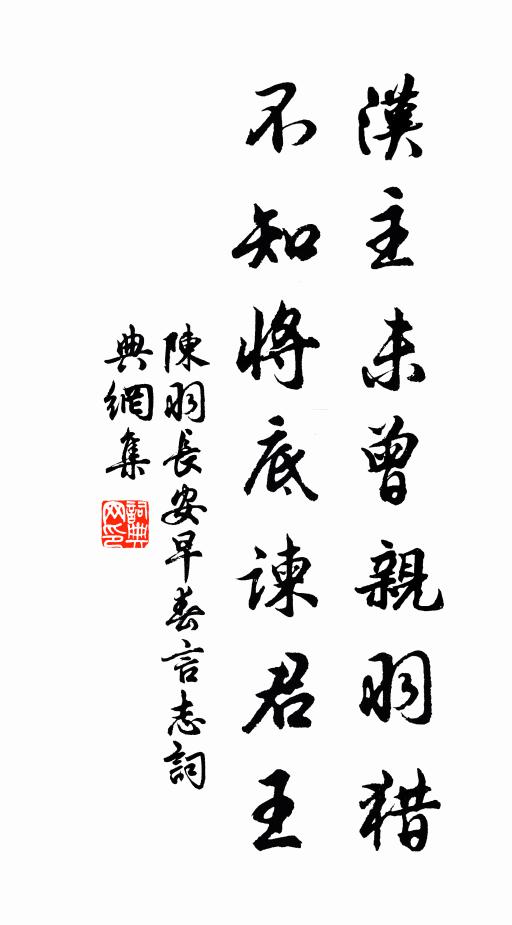 漢主未曾親羽猎
不知将底谏君王
陳羽長安早春言志詞
典網集
詞典
网印